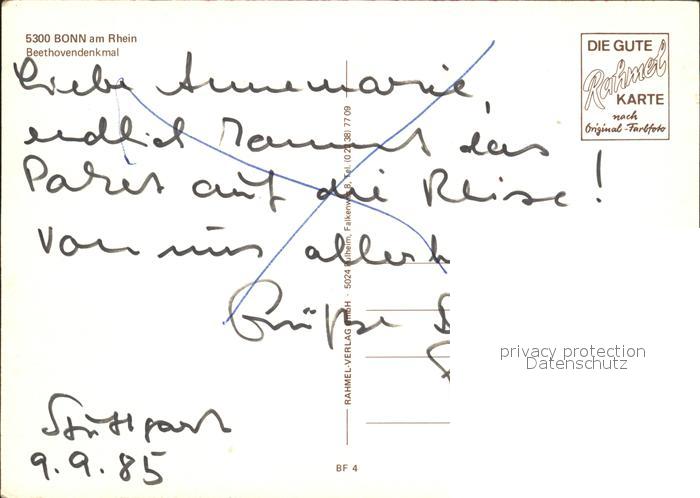 5300 BONN am Rhein
Beethovendenkmal
DIE GUTE
Rahmel
KARTE
nach
Original-Farbfoto
Liebe Annemarie,
endlich kommt das
Paket auf die Reise!
Von uns allerh
Grüße
Stuttgart
9.9.85
RAHMEL-VERLAG GmbH · 5024 Pulheim, Falkenweg 8, Tel. (0 22 38) 77 09
BF 4
privacy protection
Datenschutz